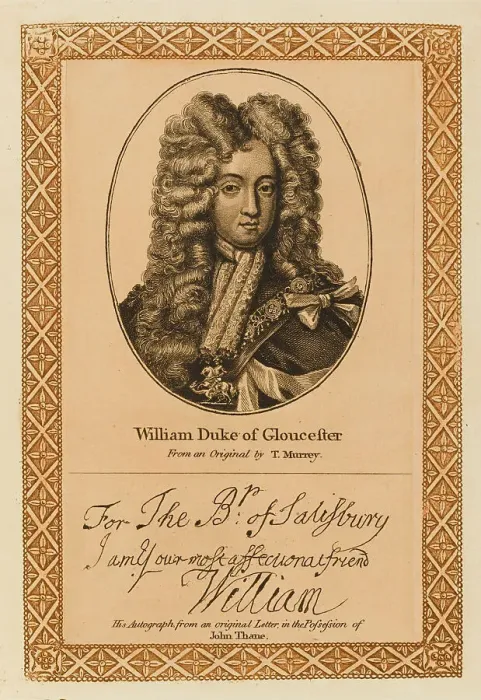 William Duke of Glouceſter
From an Original by T. Murrey.
For The Bp. of Salisbury
I am Your most affectionat friend
William
His Autograph from an original Letter, in the Poſseſsion of
John Thane.